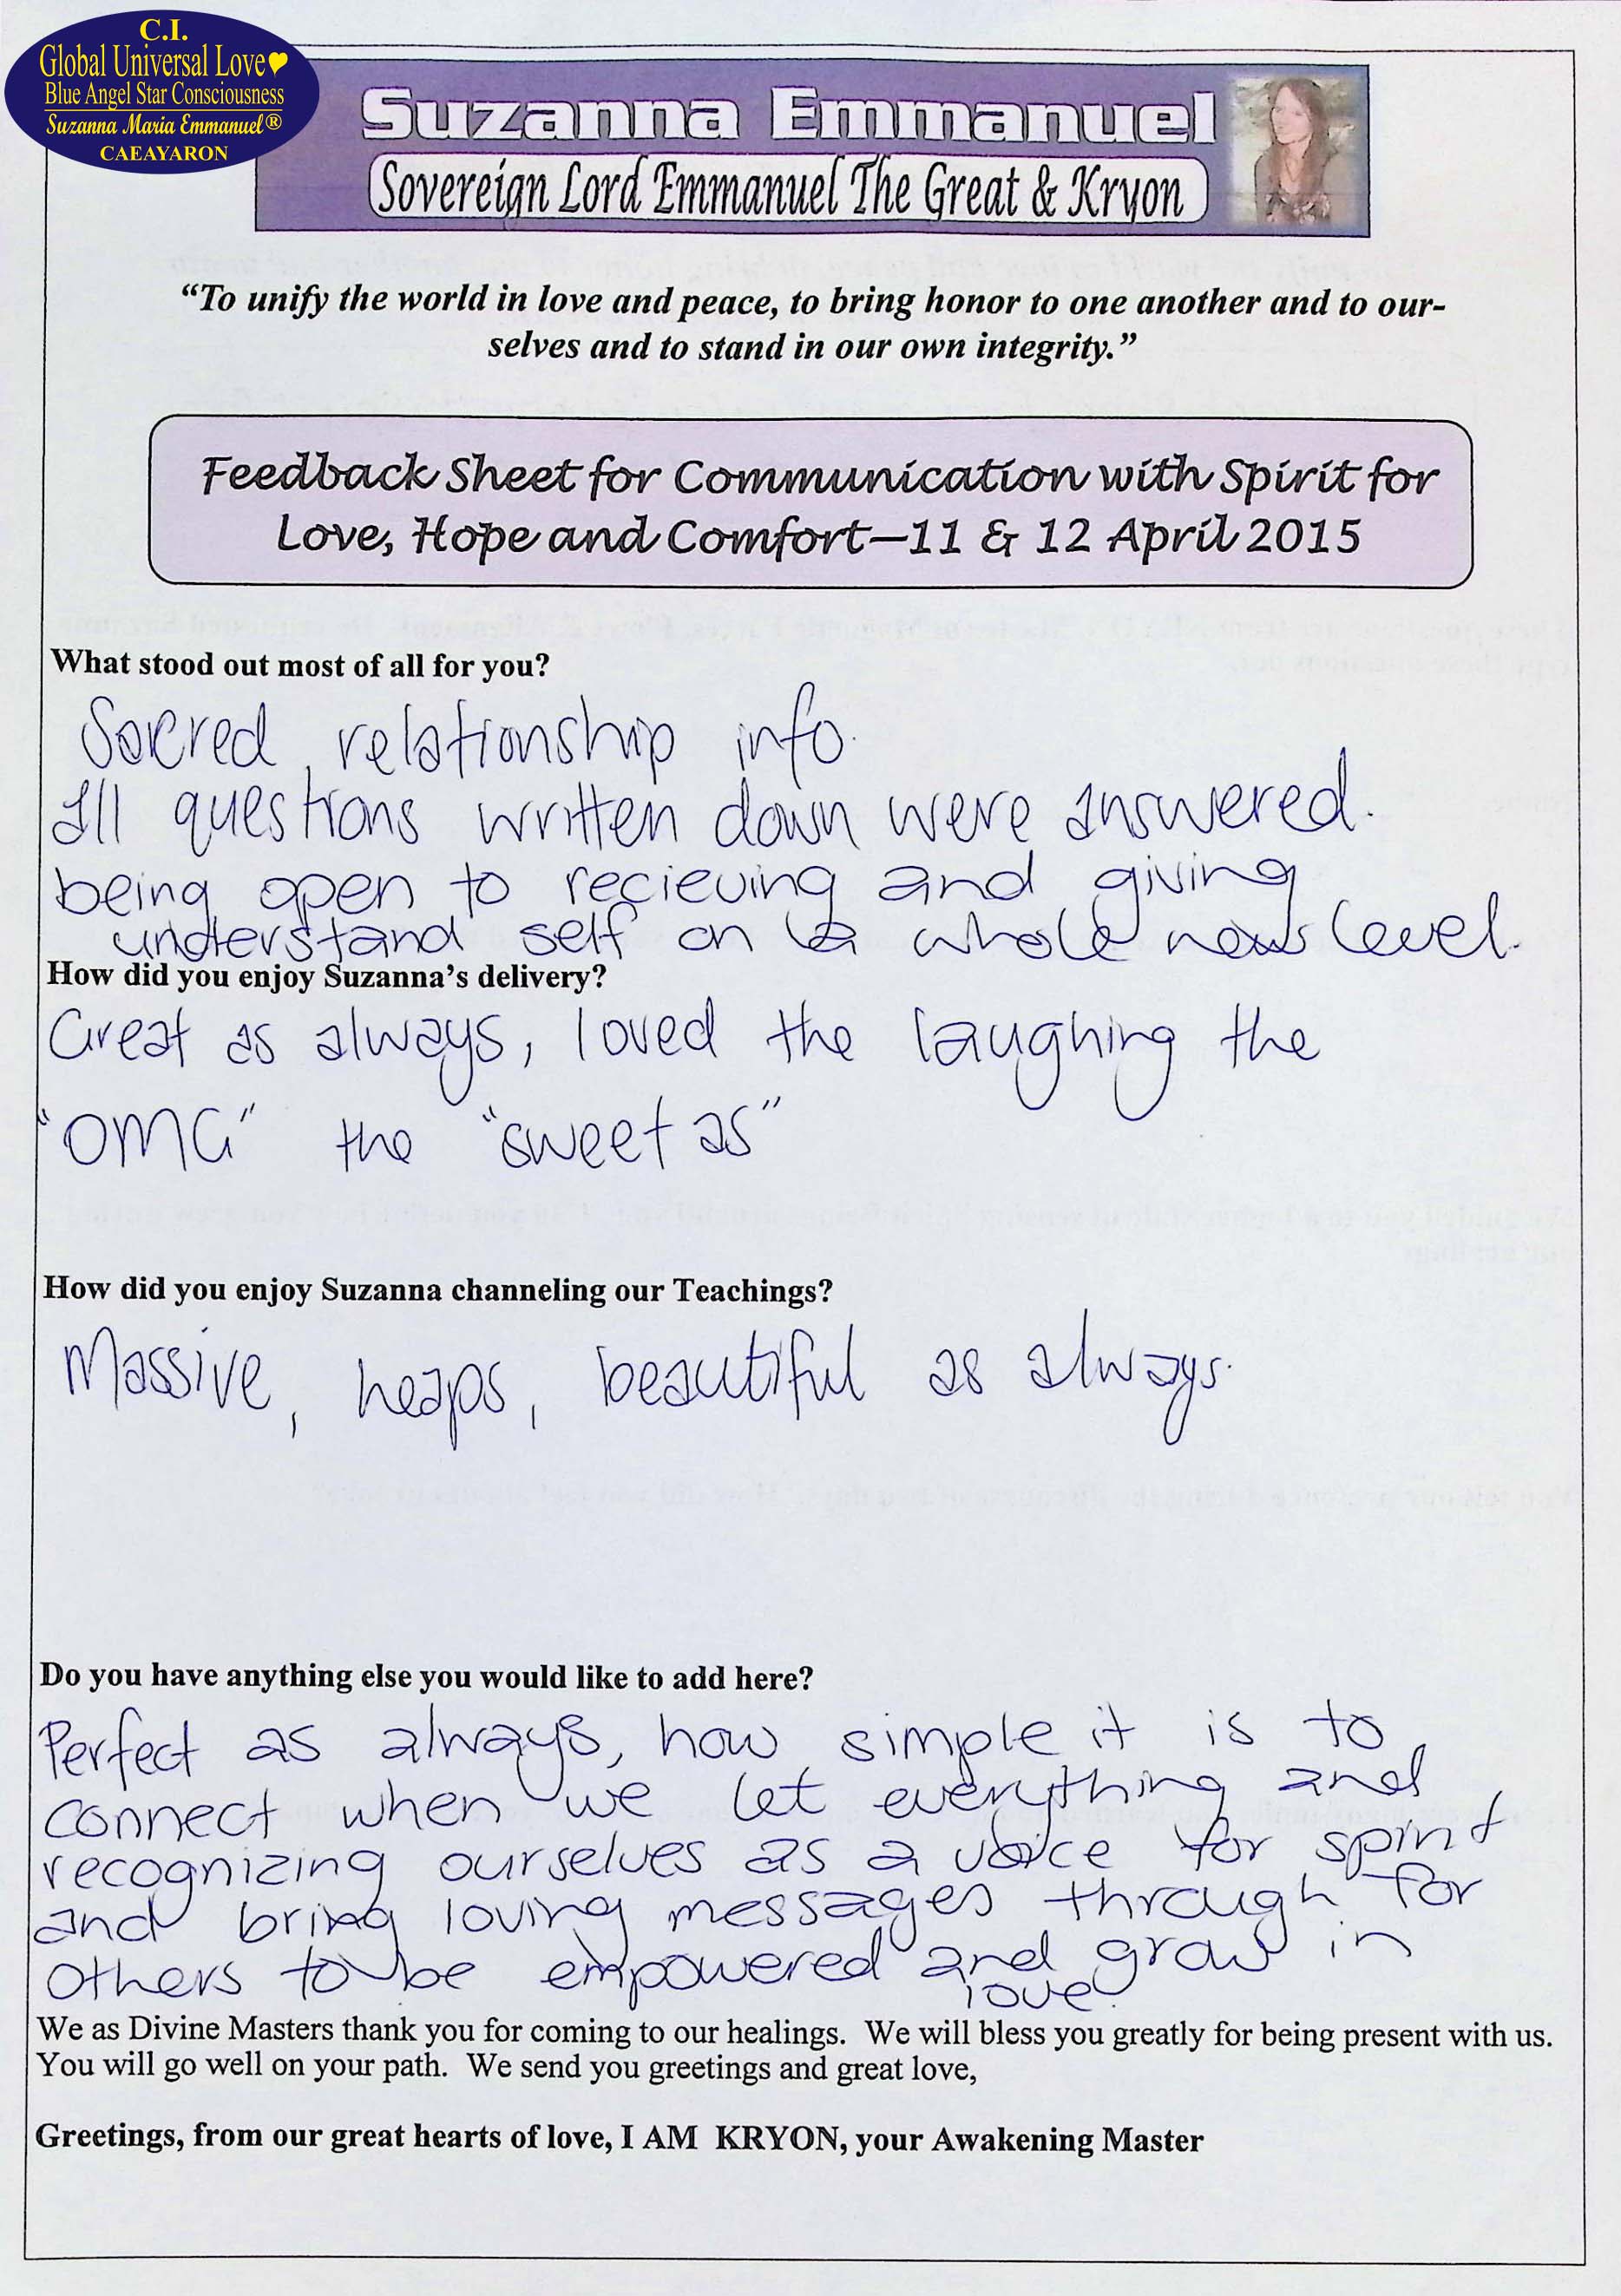 C.I.
Global Universal Love
Blue Angel Star Consciousness
Suzanna Maria Emmanuel®
CAEAYARON
Suzanna Emmanuel
Sovereign Lord Emmanuel The Great & Kryon
“To unify the world in love and peace, to bring honor to one another and to our-
selves and to stand in our own integrity.”
Feedback Sheet for Communication with Spirit for
Love, Hope and Comfort—11 & 12 April 2015
What stood out most of all for you?
Sacred relationship info.
All questions written down were answered.
being open to recieving and giving
understand self on a whole new level.
How did you enjoy Suzanna’s delivery?
Great as always, loved the laughing the
"OMG" the "sweet as"
How did you enjoy Suzanna channeling our Teachings?
Massive, heaps, beautiful as always.
Do you have anything else you would like to add here?
Perfect as always, how simple it is to
connect when we let everything and
recognizing ourselves as a voice for spirit
and bring loving messages through for
others to be empowered and grow in
love.
We as Divine Masters thank you for coming to our healings. We will bless you greatly for being present with us.
You will go well on your path. We send you greetings and great love,
Greetings, from our great hearts of love, I AM KRYON, your Awakening Master